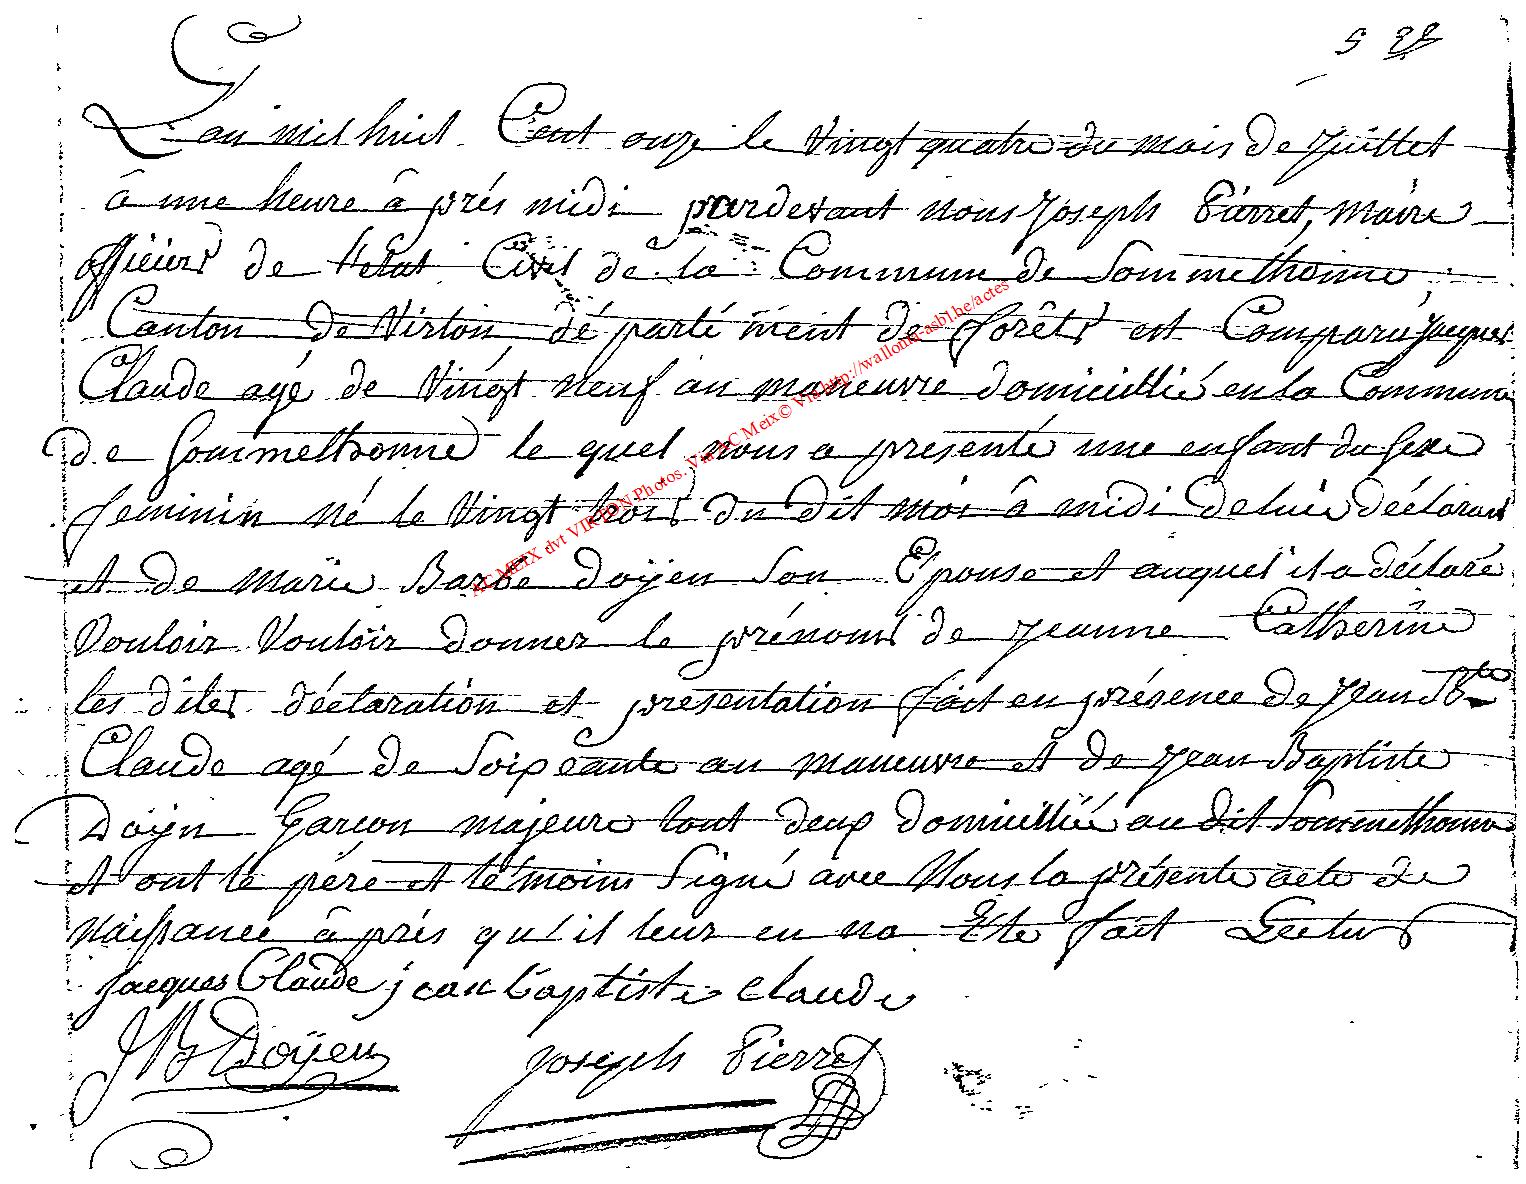 L'an mil huit Cent onze le Vingt quatre du mois de Juillet
â une heure â prés midi pardevant nous Joseph Pierret, Maire
officiers de l'etat Civil de la Commune de Sommethonne,
Canton de Virton, dé parté ment de forêts est Comparu Jacques
Claude agé de Vingt neuf an maneuvre domicillié en la Commune
de Sommethonne le quel nous a presenté une enfant du sexe
feminin né le Vingt trois du dit mois â midi de lui déclarant
et de Marie Barbe Doÿen son Epouse et auquel il a déclaré
Vouloir Vouloir donner le prénoms de Jeanne Catherine
les dites déclaration et presentation fait en présence de Jean Bte
Claude agé de soixeante an maneuvre et de Jean Baptiste
Doÿn Garçon majeure tout deux domicillié au dit Sommethonne
et ont le pére et témoins signé avec Nous la présente acte de
Naissance â prés qu'il leur en na Eté fait Lectur
jacques Claude jean baptiste claude
JB Doÿen Joseph Pierret
AC MEIX dvt VIRTON Photos. Via AC Meix© Via http://wallonica.asbl.be/actes